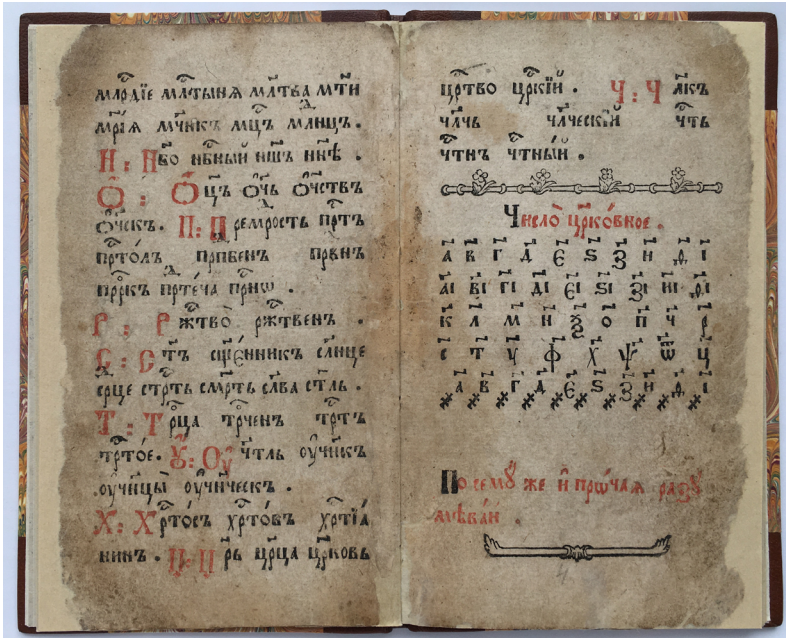 млⷭ҇рдїе млⷭ҇тынѧ мл҃тва мт҃и
мр҃їѧ мч҃нкъ мцⷭ҇ъ млⷣнцъ .
Н : Нб҃во нбⷭ҇ный нш҃ъ нн҃ѣ .
Ѿ : Ѻц҃ъ ѻ҃чь ѻ҃чствъ
ѻ҃чскъ. П : Премⷣрость прⷭ҇тъ
прⷭ҇то́лъ прпⷣбенъ првⷣнъ
прⷪ҇ркъ прⷣте́ча прⷭ҇нѡ .
Р : Ржⷭ҇тво̀ ржⷭ҇твенъ .
С : Ст҃ъ сщ҃е́нникъ сл҃нце
срⷣце стрⷭ҇ть см҃рть сла҃ва сп҃ль .
Т : Трⷪ҇ца трⷪ҇ченъ трⷭ҇тъ
трⷭ҇тое. Ꙋ : Оу҆чт҃ль оу҆чн҃къ
.оу҆чн҃цы̀ оу҆чн҃ческъ .
Х : Хрⷭ҇то́съ хрⷭ҇то́въ хрⷭ҇тїа́
нинъ . Ц : Цр҃ь цр҃ца цр҃ковь
црⷭ҇тво црⷭ҇кїй . Ч : Чл҃къ
чл҃чь чл҃ческїй чⷭ҇ть
чⷭ҇тнъ чⷭ҇тный .
Число̀ цр҃ко́вное .
а҃ в҃ г҃ д҃ є҃ ѕ҃ з҃ и҃ ѳ҃ і҃
а҃і в҃і г҃і д҃і є҃і ѕ҃і з҃і и҃і ѳ҃і
к҃ л҃ м҃ н҃ ѯ҃ о҃ п҃ ч҃ р҃
с҃ т҃ у҃ ф҃ х҃ ѱ҃ ѿ҃ ц҃
҂а҃ ҂в҃ ҂г҃ ҂д҃ ҂є҃ ҂ѕ҃ ҂з҃ ҂и҃ ҂ѳ҃ ҂і҃
По семꙋ́ же и҆ прѡ́чаѧ разꙋ
мѣва́й .